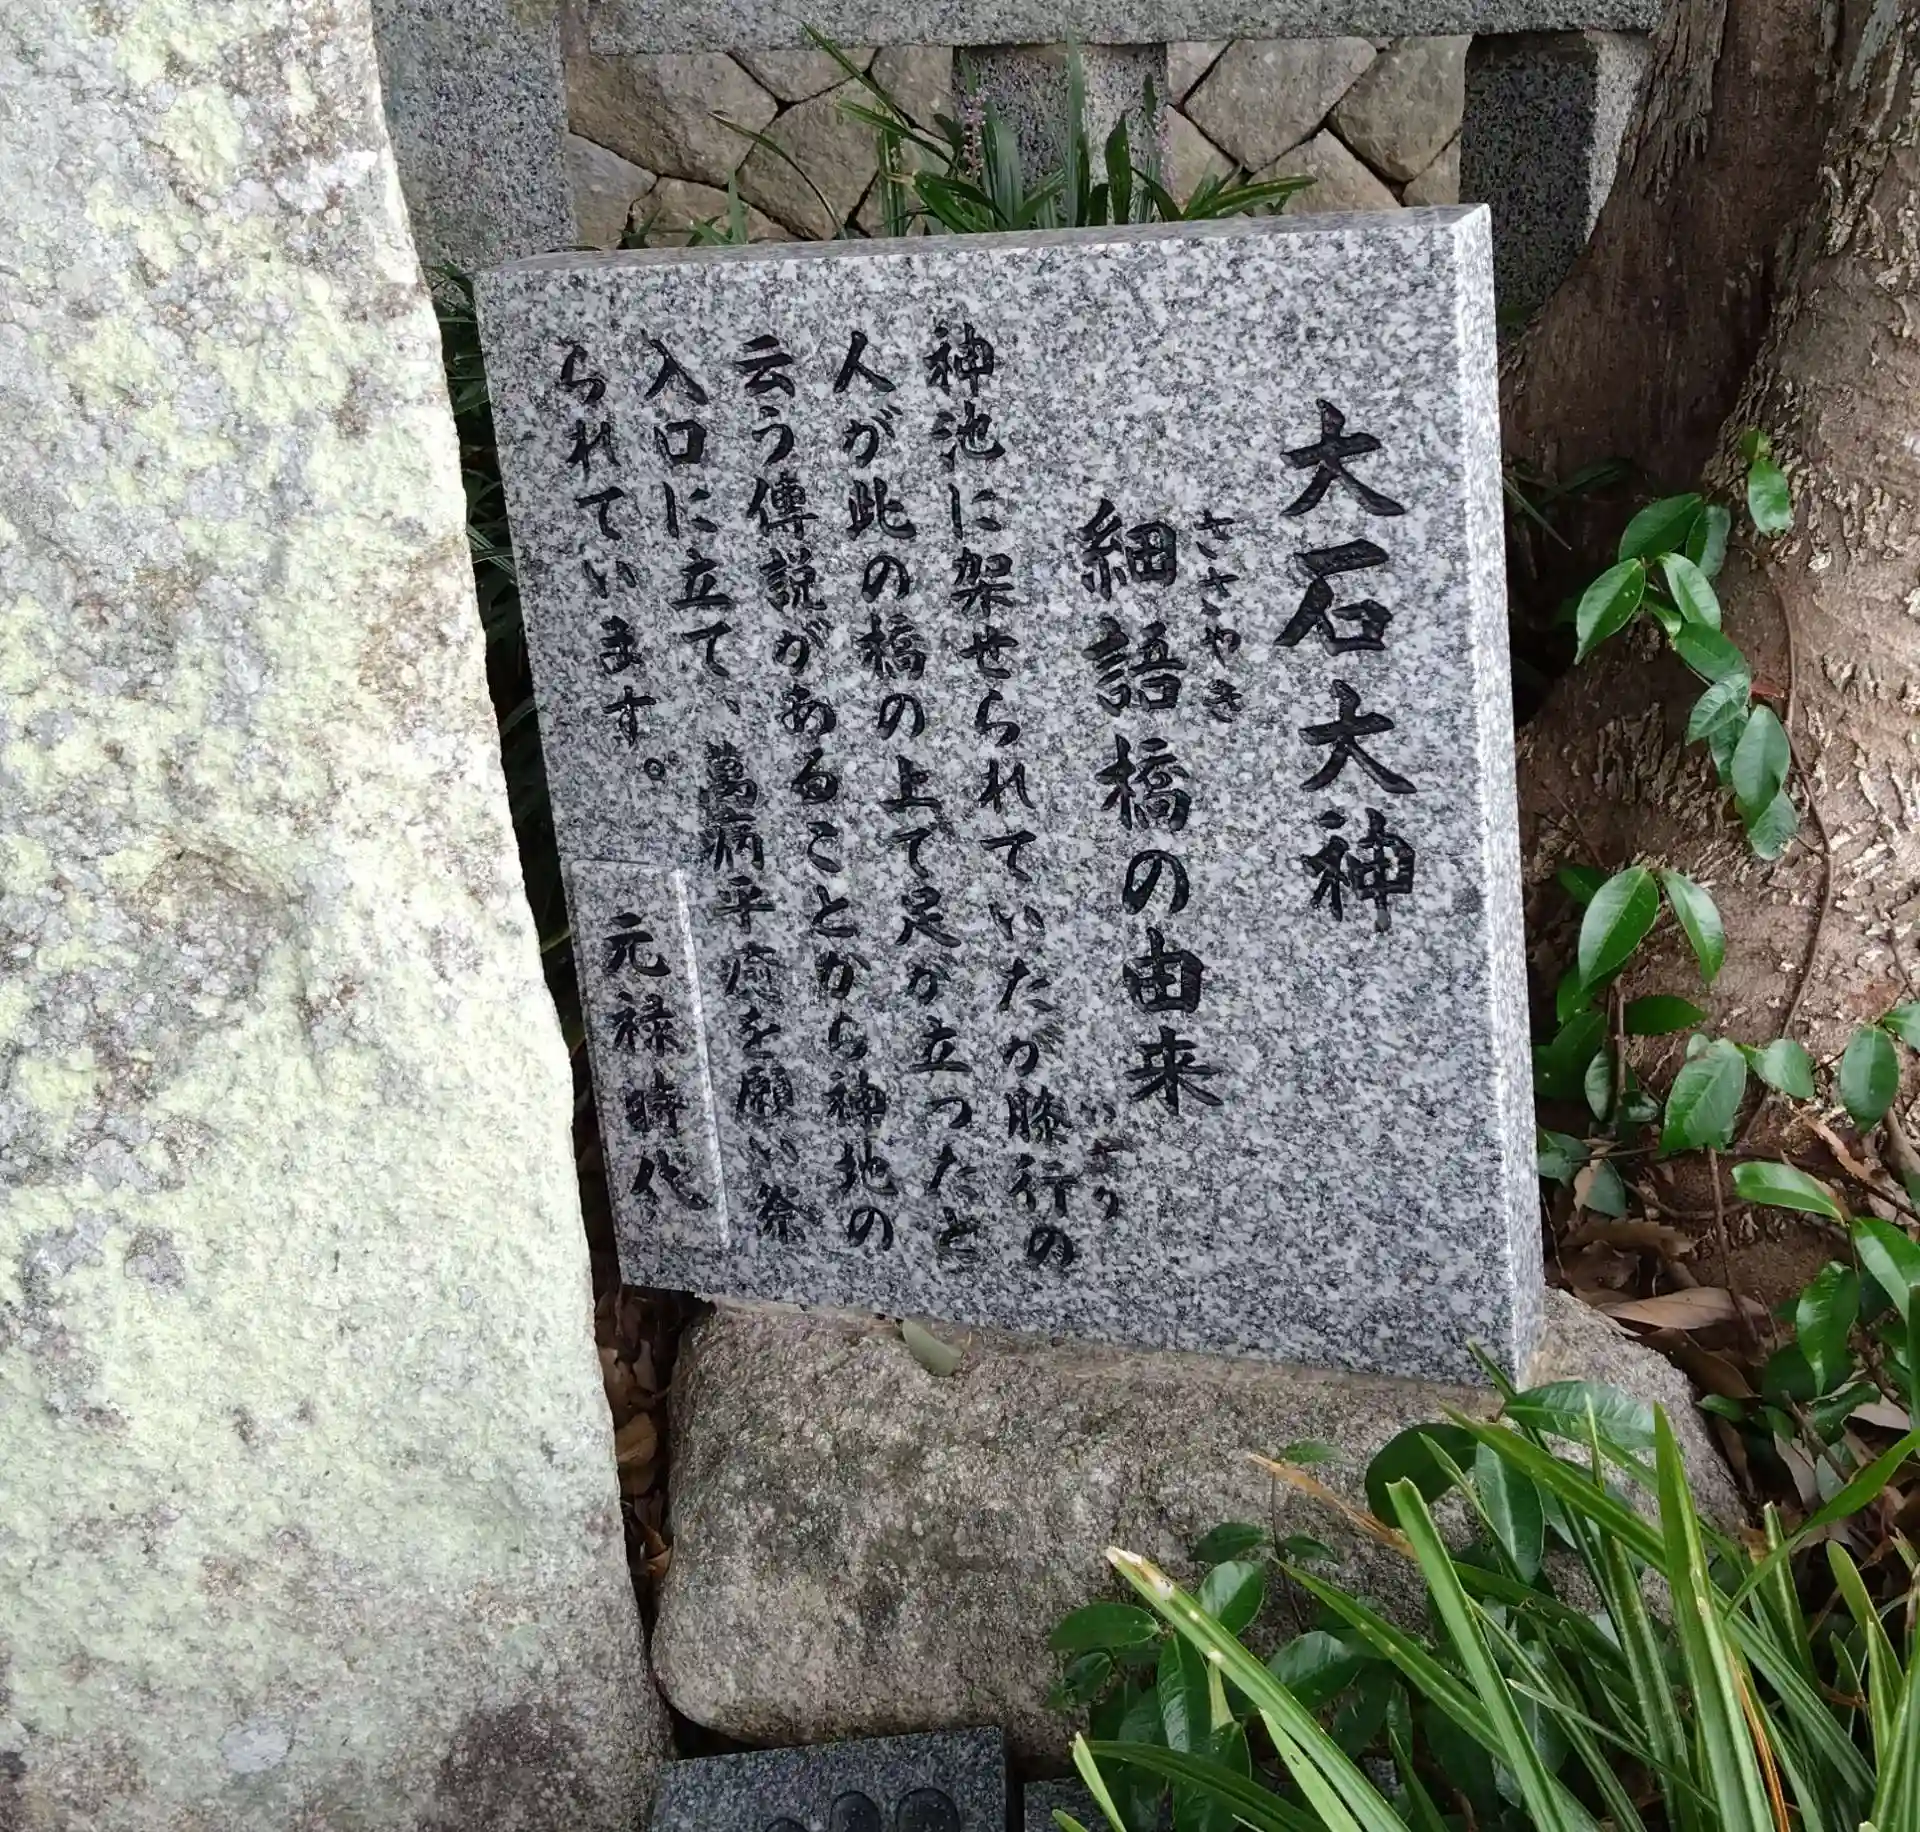 大石大神
ささやき
細語橋の由来
いざり
神池に架せられていたが膝行の
人が此の橋の上で足が立ったと
云う傳説があることから神地の
入口に立て、萬病平癒を願い祭
られています。
元禄時代